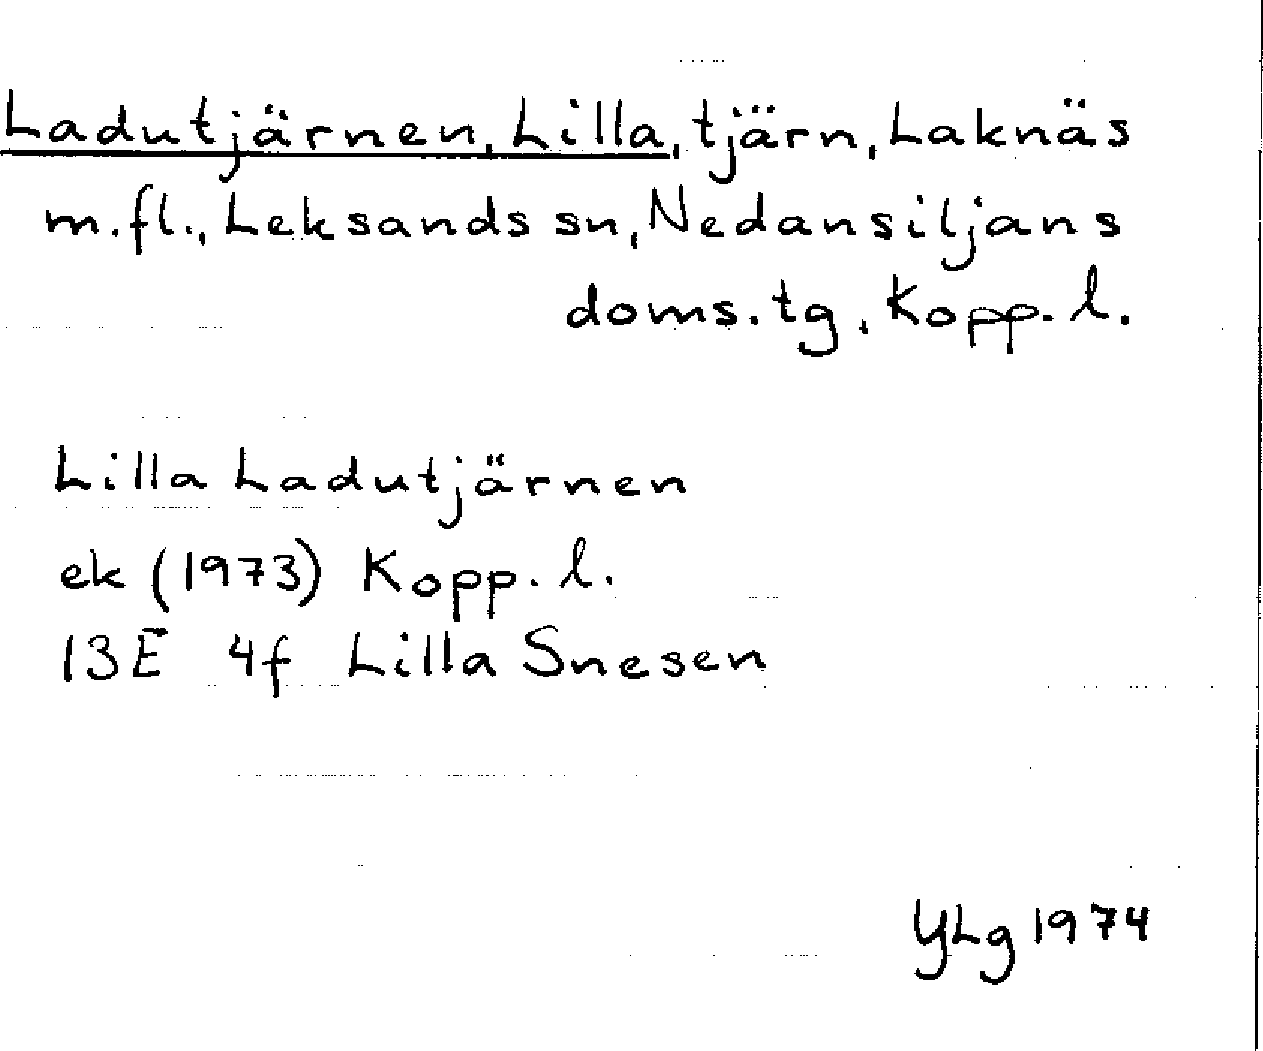 Ladutjärnen, Lilla, tjärn, Laknäs
m.fl., Leksands sn, Nedansiljans
doms.tg, Kopp. l.
Lilla Ladutjärnen
ek (1973) Kopp. l.
13E 4f Lilla Snesen
YLg 1974